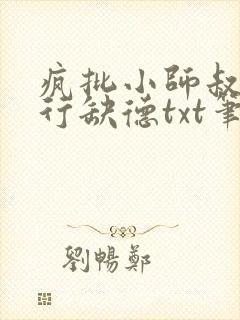 疯批小師叔
行缺德txt筆
劉暢鄭